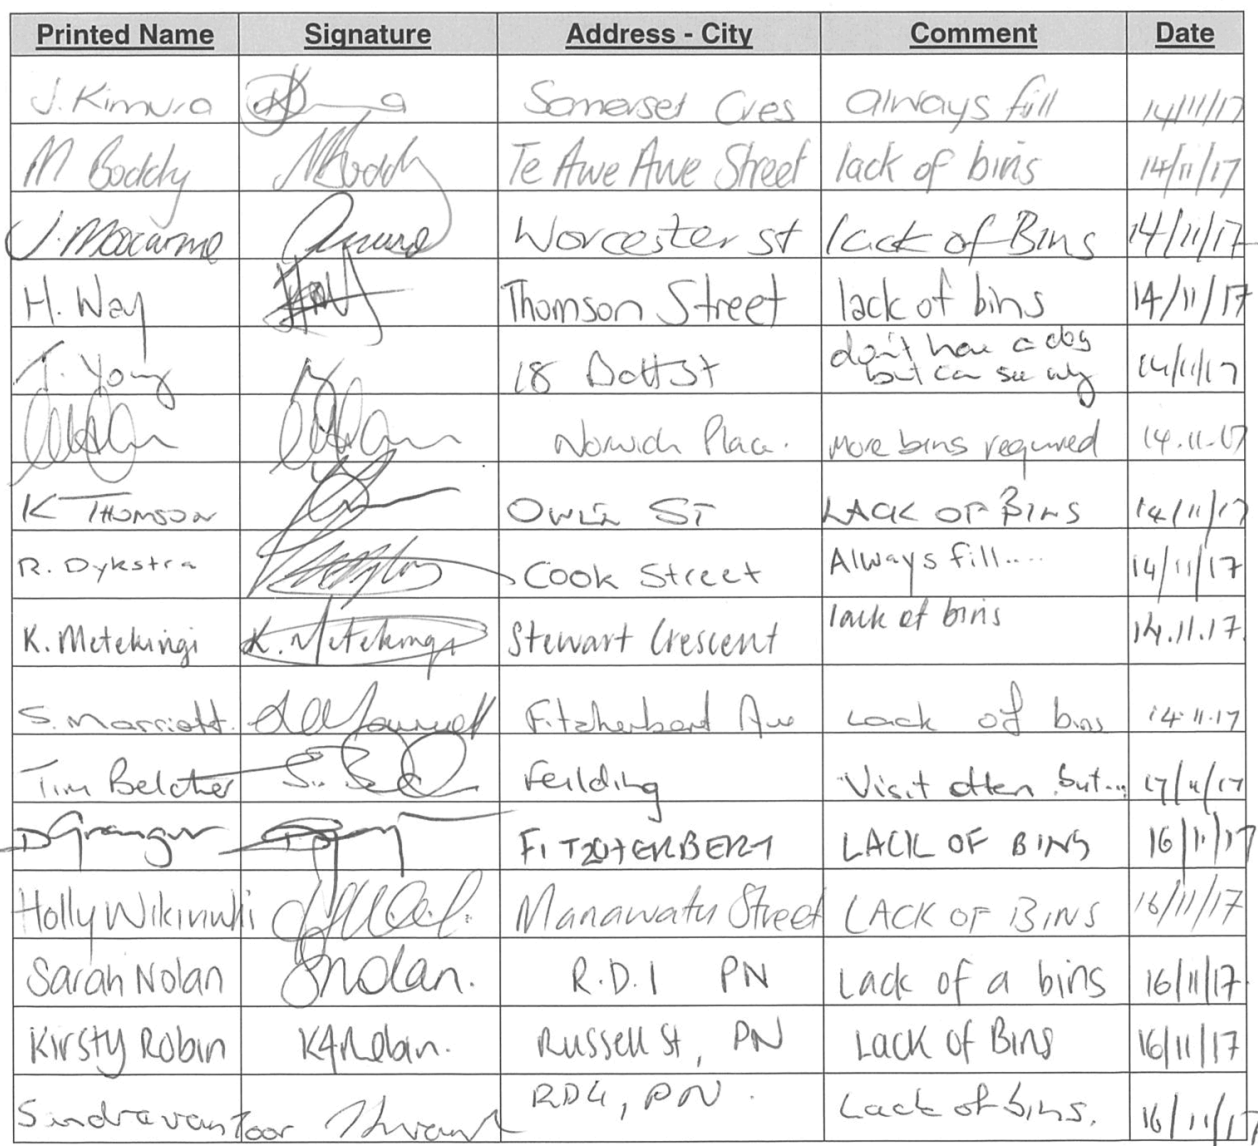 Printed Name Signature Address - City Comment Date
J. Kimura Somerset Cres always full 14/11/17
M Boddy MBoddy Te Awe Awe Street lack of bins 14/11/17
J. Worcester st lack of Bins 14/11/17
H. Way Thomson Street lack of bins 14/11/17
T. Young 18 Batt St don't have a dog 14/11/17
but can see why
Norwich Place. More bins required 14.11.17
K THOMSON OWEN ST LACK OF BINS 14/11/17
R. Dykstra Cook Street Always full.... 14/11/17
K. Metekingi K. Metekingi Stewart Crescent lack of bins 14.11.17
S. Marriott. Fitzherbert Ave Lack of bins 14.11.17
Tim Belcher Feilding Visit often but... 17/11/17
D Granger FITZHERBERT LACK OF BINS 16/11/17
Holly Manawatu Street LACK OF BINS 16/11/17
Sarah Nolan SNolan. R.D.1 PN Lack of a bins 16/11/17
Kirsty Robin Robin. Russell St, PN Lack of Bins 16/11/17
RD4, PN. Lack of bins. 16/11/17